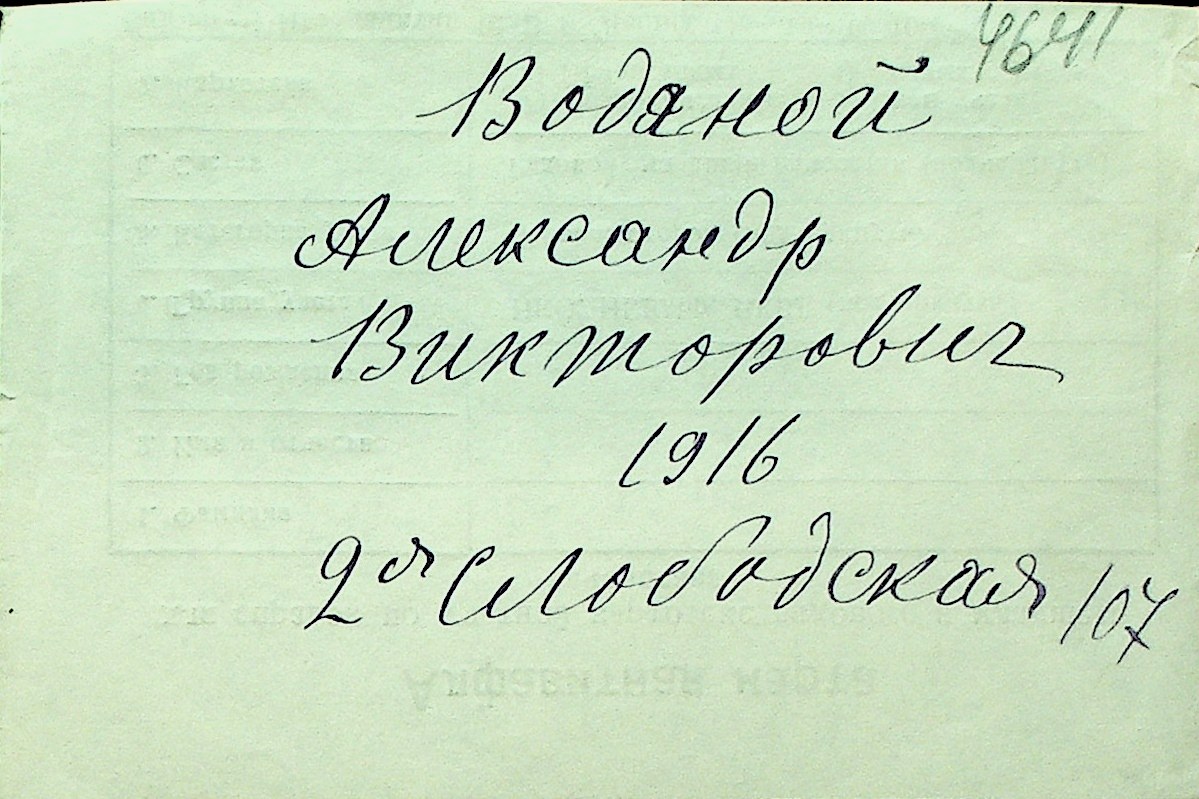 4641
Водяной
Александр
Викторович
1916
2ая Слободская 107